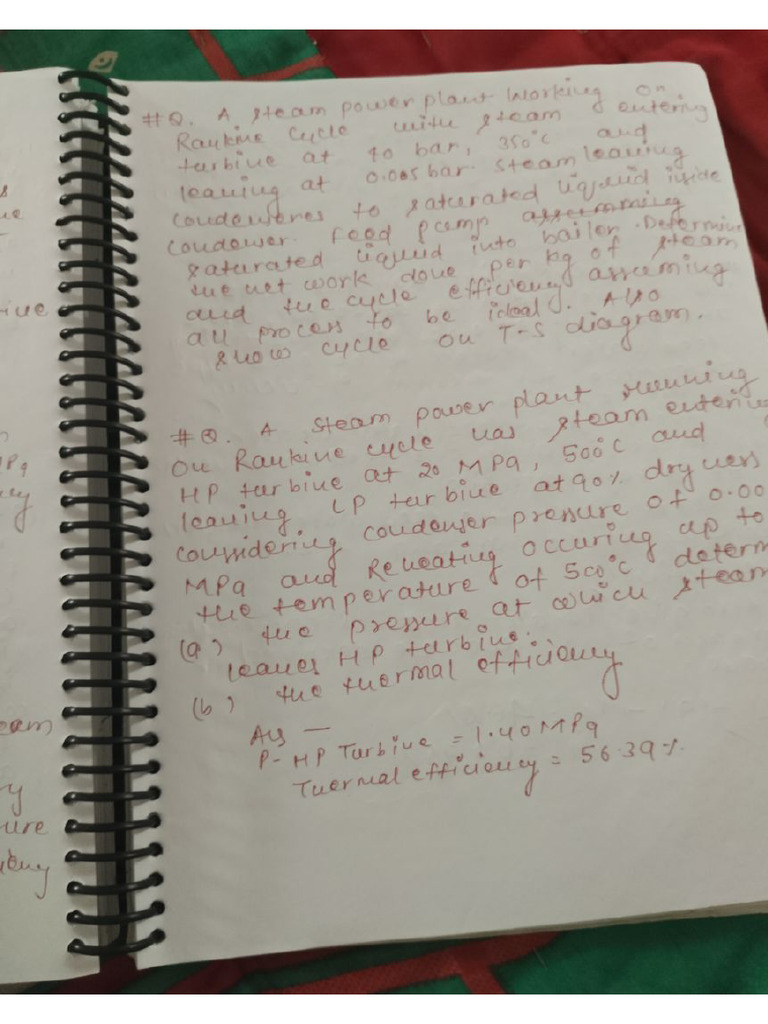 s
ue
#Q. A steam power plant working on
Rankine cycle with steam entering
turbine at 40 bar, 350°C and
leaving at 0.005 bar. Steam leaving
condenses to saturated liquid inside
condenser. Feed pump
saturated liquid into boiler. Determine
the net work done per kg of steam
and the cycle efficiency assuming
all process to be ideal. Also
show cycle on T-S diagram.
#Q. A steam power plant running
on Rankine cycle has steam entering
HP turbine at 20 MPa, 500°C and
leaving LP turbine at 90% dryness
considering condenser pressure of 0.00
MPa and Reheating occuring up to
the temperature of 500°C determ
(a) the pressure at which steam
leaves HP turbine.
(b) the thermal efficiency
Ans —
P- HP Turbine = 1.40 MPa
Thermal efficiency = 56.39%